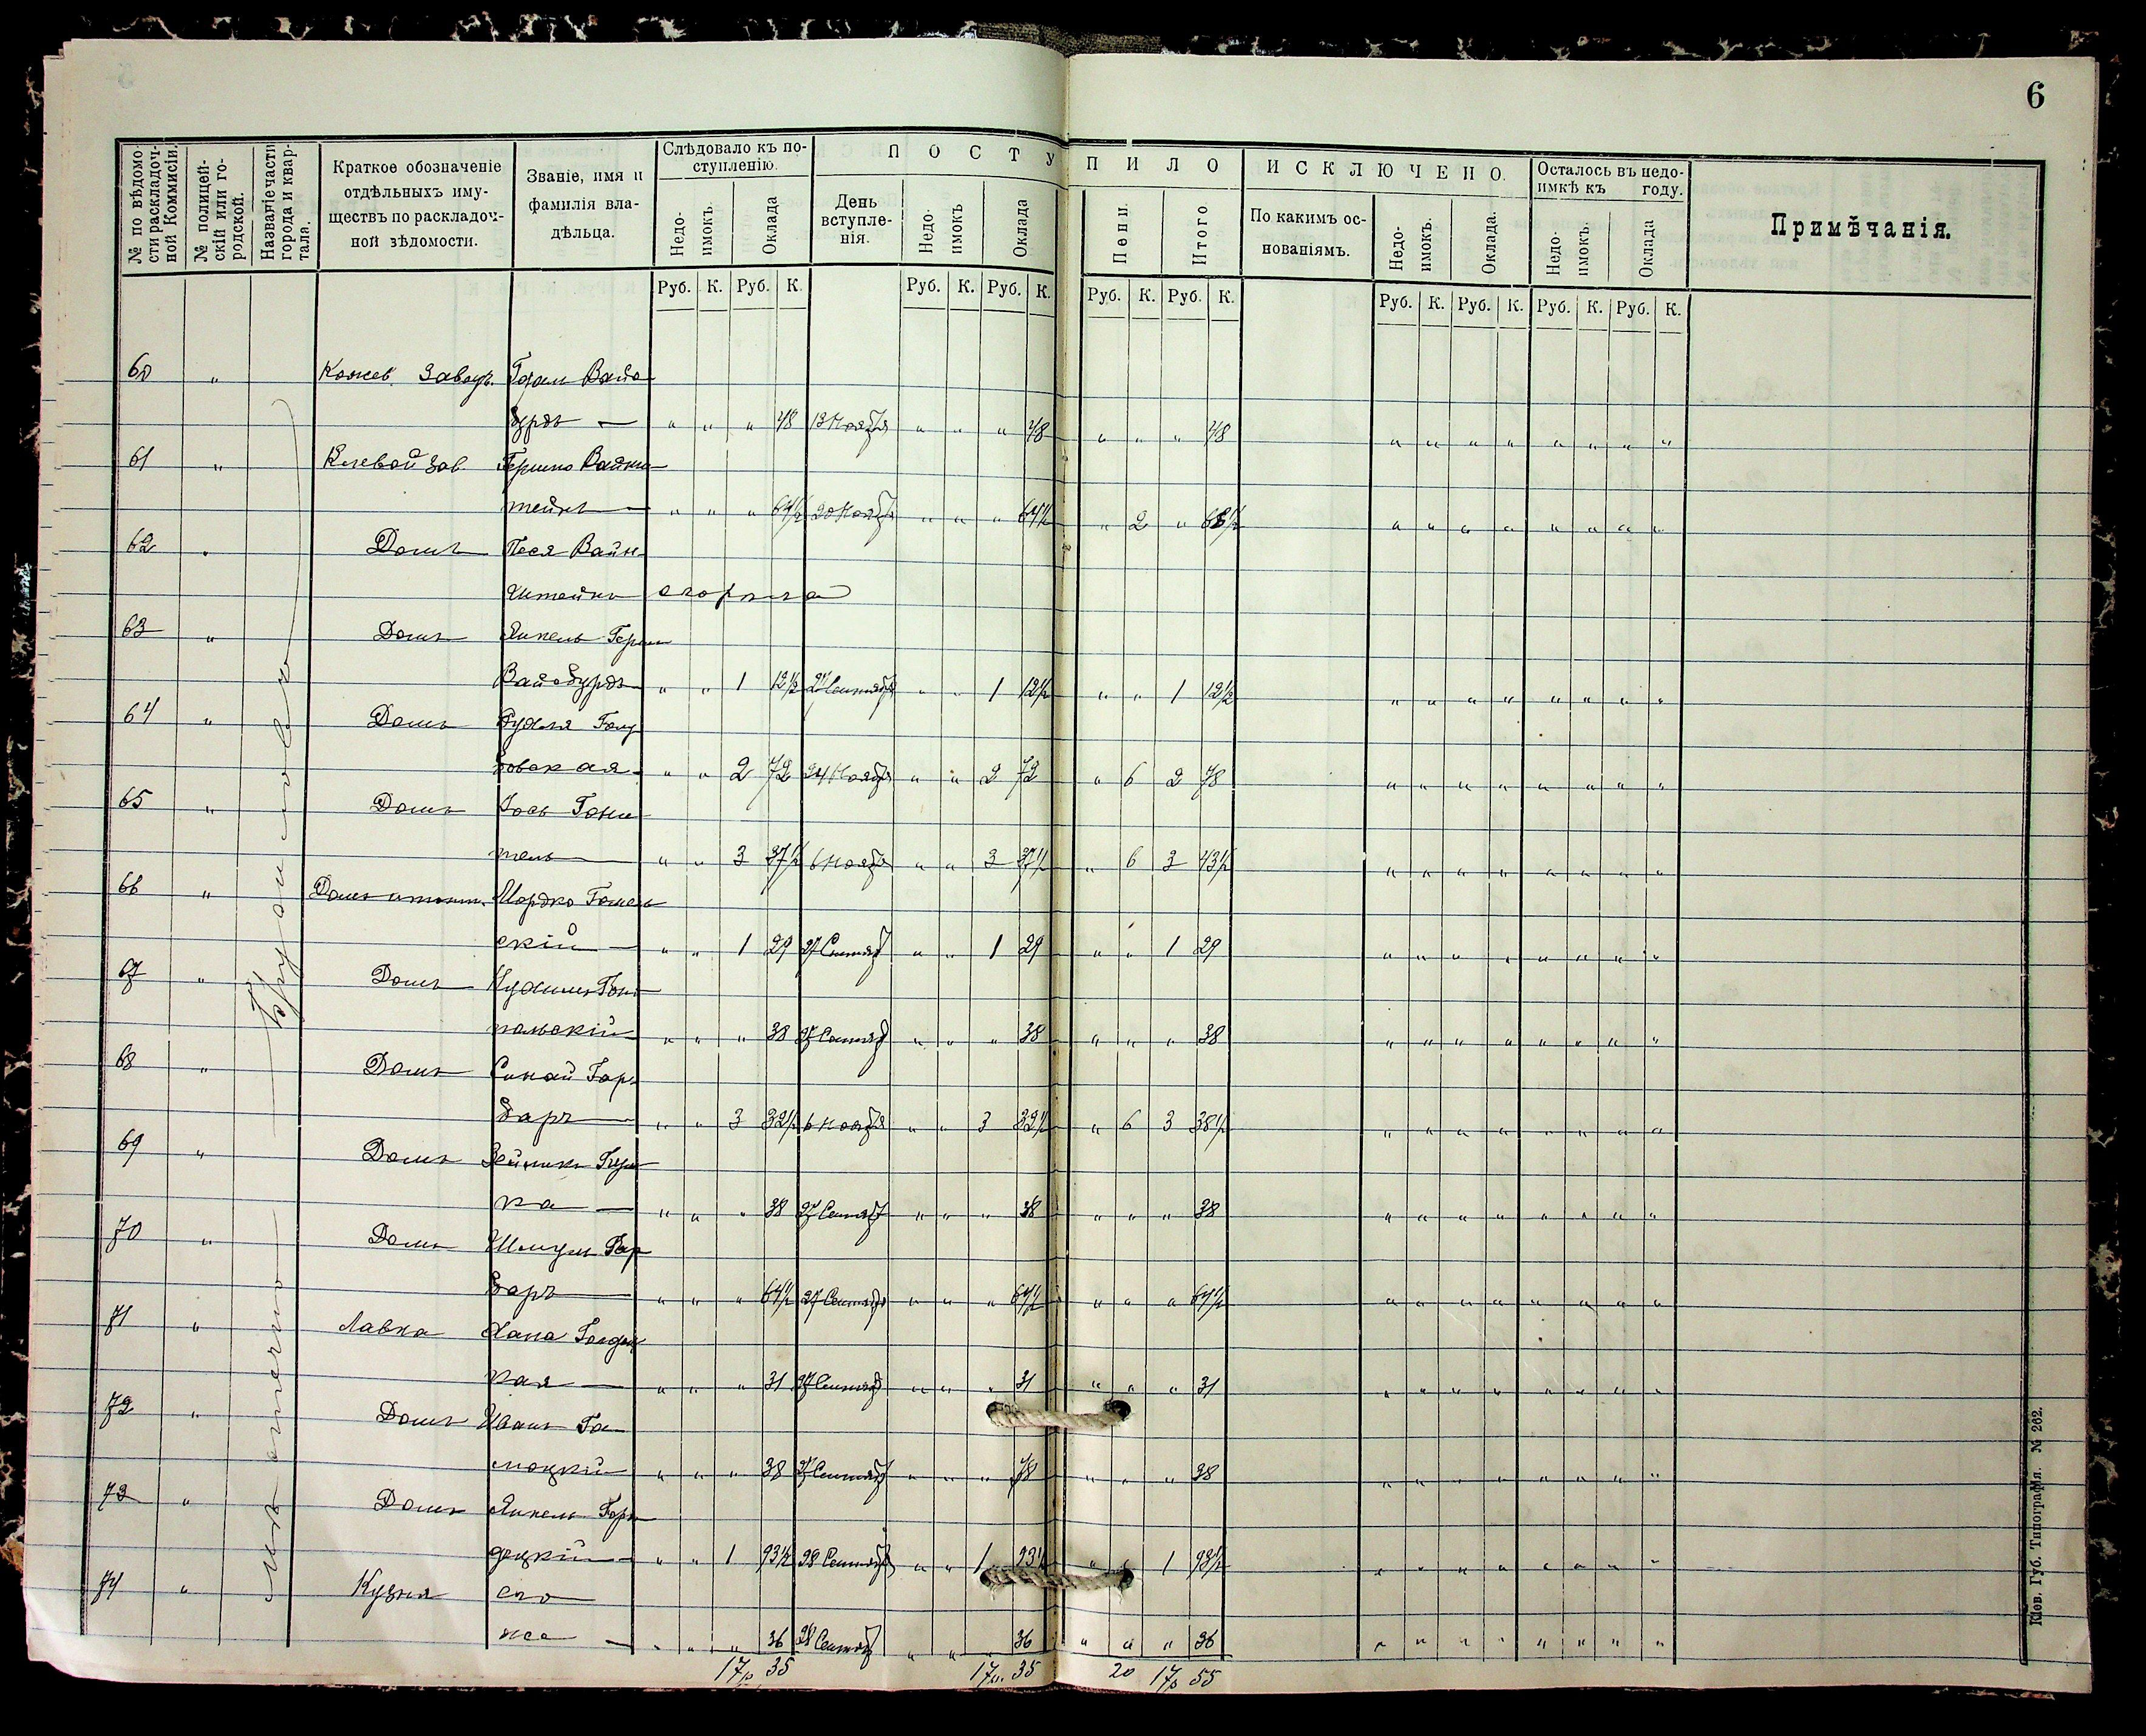 6
№ по вѣдомо-
сти раскладоч-
ной Коммисіи.
№ полицей-
скій или го-
родской.
Названіе части
города и квар-
тала.
Краткое обозначеніе
отдѣльныхъ иму-
ществъ по раскладоч-
ной вѣдомости.
Званіе, имя и
фамилія вла-
дѣльца.
Слѣдовало къ по-
ступленію.
Недо-
имокъ.
Оклада
ПОСТУПИЛО
День
вступле-
нія.
Недо-
имокъ
Оклада
Пени.
Итого
ИСКЛЮЧЕНО.
По какимъ ос-
нованіямъ.
Недо-
имокъ.
Оклада.
Осталось въ недо-
имкѣ къ году.
Недо-
имокъ.
Оклада
Примѣчанія.
Руб. К. Руб. К. Руб. К. Руб. К. Руб. К. Руб. К. Руб. К. Руб. К. Руб. К. Руб. К.
60 " Кожев. Заводъ
" " " 48 13 Ноября " " " 48 " " " 48 " " " " " " " "
61 " Клевой Зав. Гершко Вайнш
тейнъ — " " " 64½ 20 Ноября " " " 64½ " 2 " 66½ " " " " " " " "
62 " Домъ Песя Вайн-
штейнъ сгорѣла
63 " Домъ Янкель Герш
Вайсбурдъ " " 1 12½ 27 Сентября " " 1 12½ " " 1 12½ " " " " " " " "
64 " Домъ Голу
бовская — " " 2 72 24 Ноября " " 2 72 " 6 2 78 " " " " " " " "
65 " Домъ Іось
тель — " " 3 37½ 6 Ноября " " 3 37½ " 6 3 43½ " " " " " " " "
66 " Домъ Мордко Гомель
скій — " " 1 29 27 Сентяб " " 1 29 " " 1 29 " " " " " " " "
67 " Домъ
польскій " " " 38 27 Сентяб " " " 38 " " " 38 " " " " " " " "
68 " Домъ Синай Гар-
баръ — " " 3 32½ 6 Ноября " " 3 32½ " 6 3 38½ " " " " " " " "
69 " Домъ
ка — " " " 38 27 Сентяб " " " 38 " " " 38 " " " " " " " "
70 " Домъ Шмуль Гар
баръ — " " " 64½ 27 Сентяб " " " 64½ " " " 64½ " " " " " " " "
71 " Лавка Хана
кая — " " " 31 27 Сентяб " " " 31 " " " 31 " " " " " " " "
72 " Домъ Иванъ Га-
" " " 38 27 Сентяб " " " 38 " " " 38 " " " " " " " "
73 " Домъ Янкель Горо
децкій — " " 1 93½ 28 Сентяб " " 1 93½ " " 1 93½ " " " " " " " "
74 " Кузня его
же — " " " 36 28 Сентяб " " " 36 " " " 36 " " " " " " " "
17р 35 17р. 35 20 17р 55
мѣстечко
Кіев. Губ. Типографія. № 262.